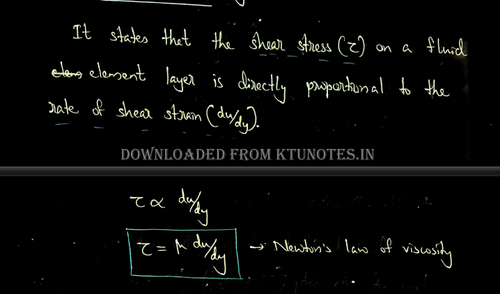 It states that the shear stress (τ) on a fluid
element layer is directly proportional to the
rate of shear strain (du/dy).
DOWNLOADED FROM KTUNOTES.IN
τ ∝ du/dy
τ = μ du/dy → Newton's law of viscosity